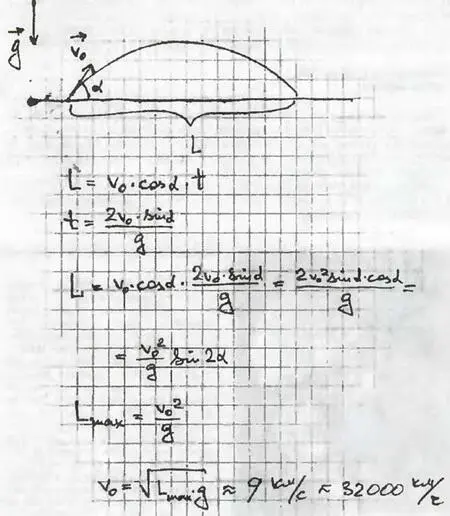 g⃗
v⃗₀
α
L
L = v₀·cosα·t
t = 2v₀·sinα/g
L = v₀·cosα·2v₀·sinα/g = 2v₀²sinα·cosα/g =
= v₀²/g sin 2α
Lmax = v₀²/g
v₀ = √(Lmax·g) ≈ 9 км/с ≈ 32000 км/г